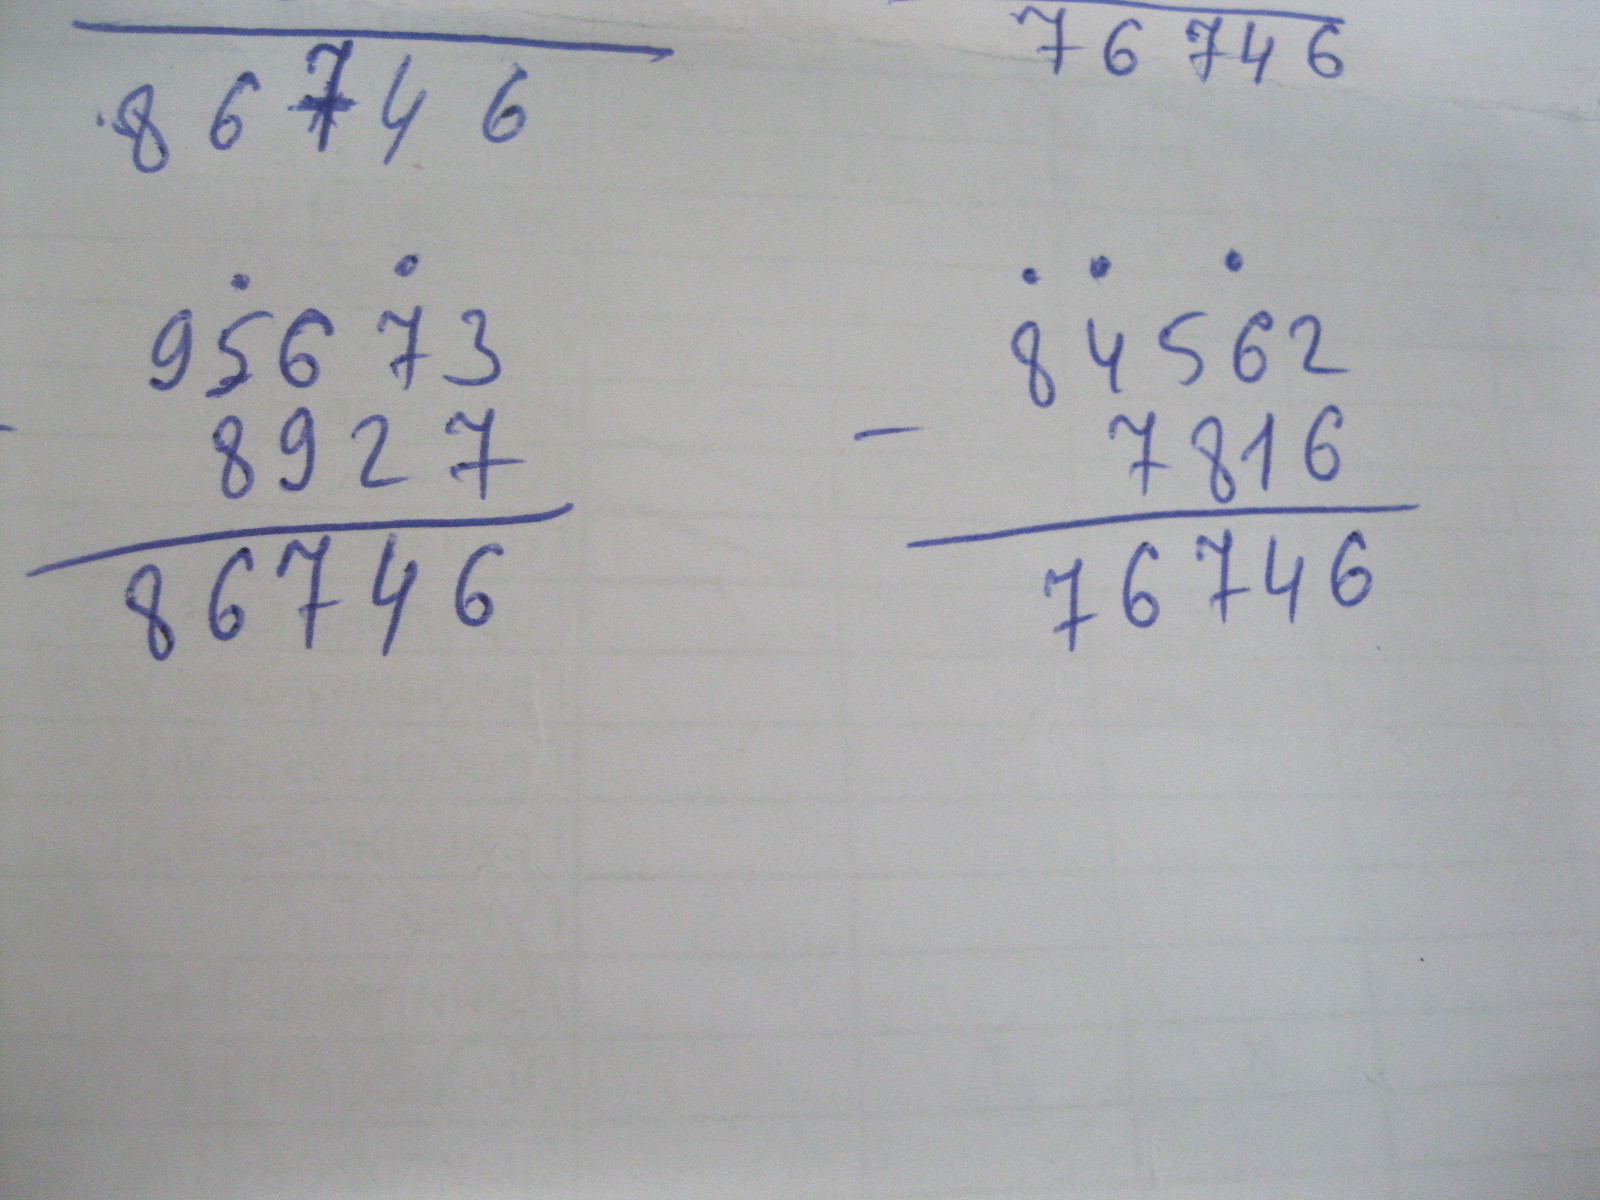 86746
76746
95673
- 8927
86746
84562
- 7816
76746